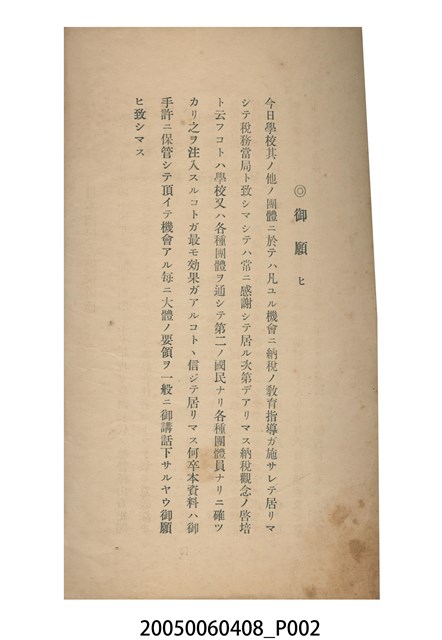 ◎御願ヒ
今日學校其ノ他ノ團體ニ於テハ凡ユル機會ニ納稅ノ敎育指導ガ施サレテ居リマ
シテ稅務當局ト致シマシテハ常ニ感謝シテ居ル次第デアリマス納稅觀念ノ啓培
ト云フコトハ學校又ハ各種團體ヲ通シテ第二ノ國民ナリ各種團體員ナリニ確ツ
カリ之ヲ注入スルコトガ最モ効果ガアルコトヽ信ジテ居リマス何卒本資料ハ御
手許ニ保管シテ頂イテ機會アル每ニ大體ノ要領ヲ一般ニ御講話下サルヤウ御願
ヒ致シマス
20050060408_P002